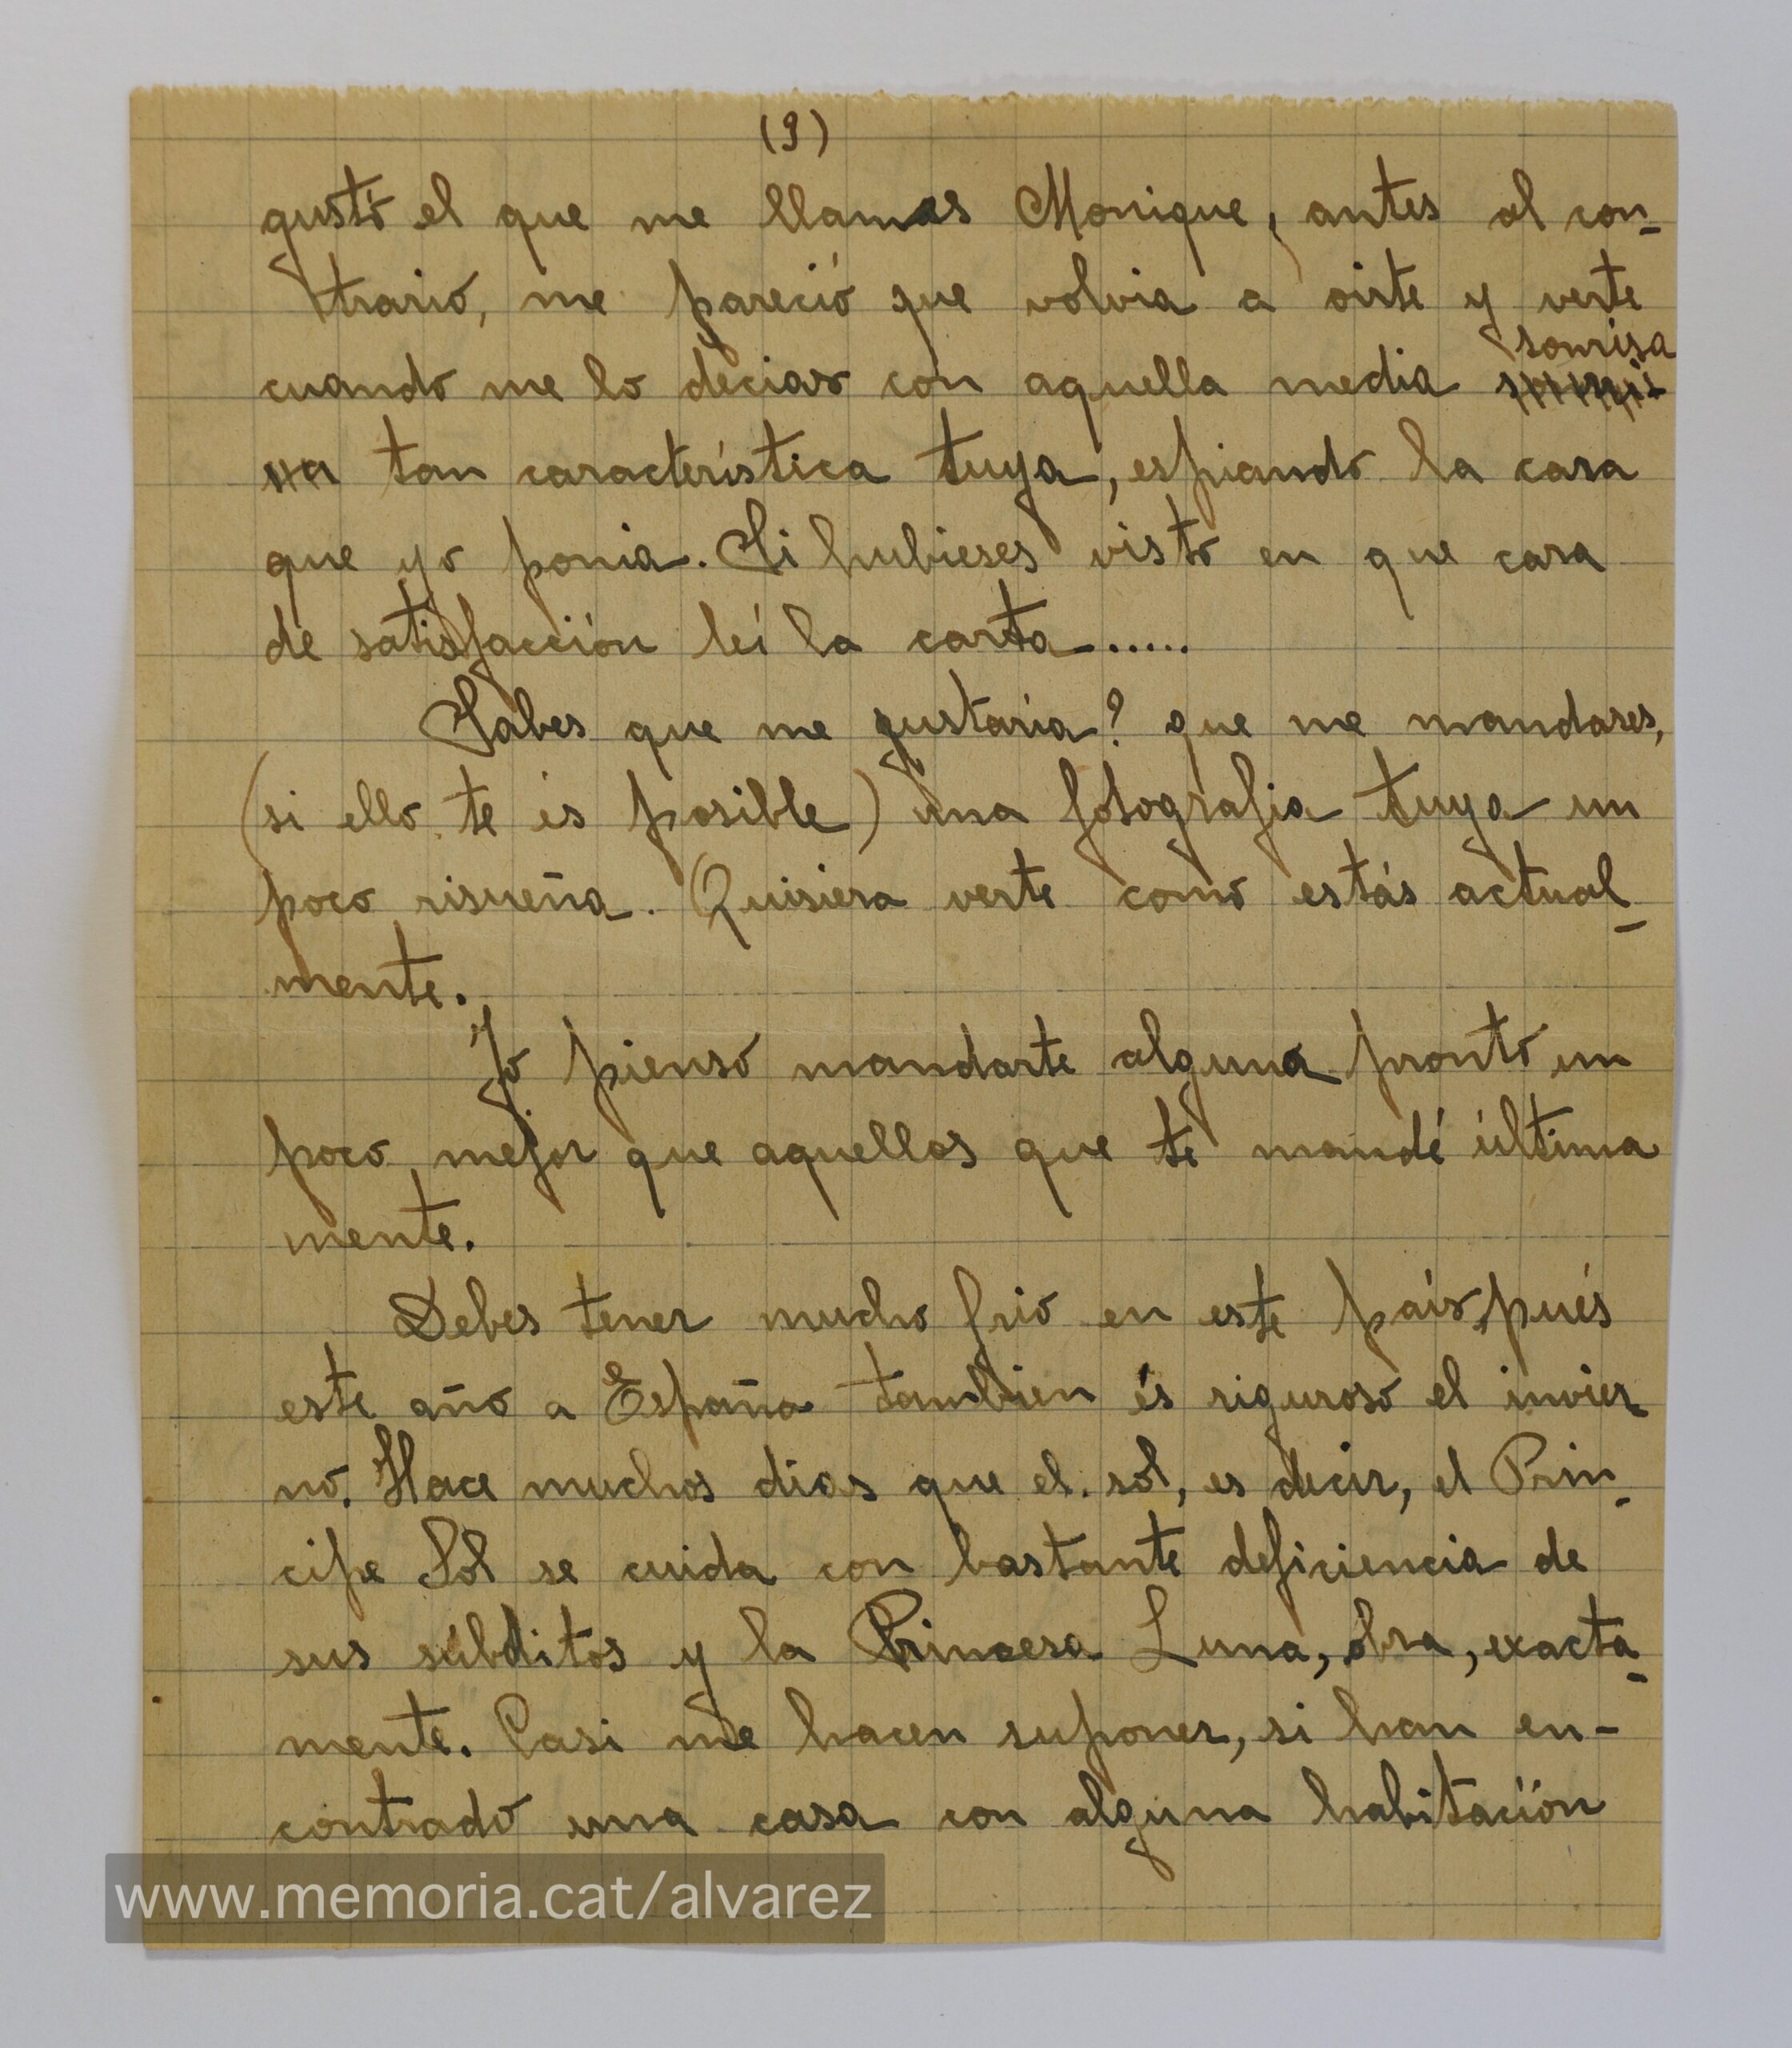 (9)
gustó el que me llamas Monique, antes al con-
trario, me pareció que volvia a oirte y verte
sonrisa
cuando me lo decias con aquella media
tan característica tuya, espiando la cara
que yo ponia. Si hubieses visto en que cara
de satisfacción leí la carta.....
Sabes que me gustaría? que me mandases,
(si ello te és posible) una fotografia tuya un
poco risueña. Quisiera verte como estás actual-
mente.
Yo pienso mandarte alguna pronto un
poco mejor que aquellas que te mandé última
mente.
Debes tener mucho frio en este país, pués
este año a España tambien és riguroso el invier-
no. Hace muchos días que el sol, es decir, el Prin-
cipe Sol se cuida con bastante deficiencia de
sus súbditos y la Princesa Luna, obra, exacta-
mente. Casi me hacen suponer, si han en-
contrado una casa con alguna habitación
www.memoria.cat/alvarez